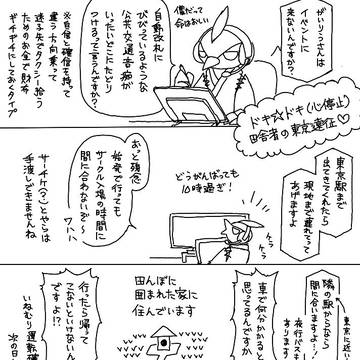 がいりうさんは
イベントに
来ないんですか？
僕だって
今はおいしい
自動改札に
びびっているような
公共交通音痴が
いったいどこにたどり
つけるって言うんですか？
※自信と確信を持って
違う方向乗って
迷子先でタクシー拾う
ためのお金で財布
ギチギチにしてるタイプ
ドキ☆ドキ(心停止)
田舎者の東京遠征♡
東京駅まで
出てきてくれたら
現地まで
あげますよ
どうがんばっても
10時過ぎ！
おっと残念
始発で行っても
サークル入場の時間に
間に合わないぞ〜
ワハハ
サーチケ(?)とやらは
手渡しできませんね
ケラ
ケラ
東京に近
隣の駅からなら
間に合いますよ…！
夜行バスも
あります
車で何分かかると
思ってるんですか
田んぼに
囲まれた家に
住んでいます
行ったら帰って
こないといけないん
ですよ！？
いねむり運転確
次の日